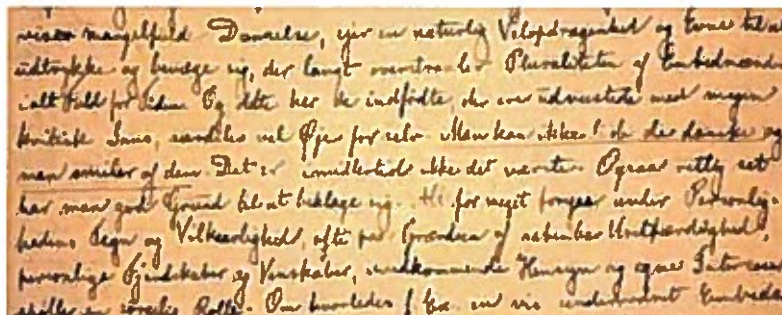 viser mangelfuld Dannelse, ejer en naturlig Velopdragenhed og Evne til at
udtrykke og bevæge sig, der langt overstraaler Pluraliteten af Embedsmænd
i alt Fald for Tiden. Og dette har de indfødte, der ere udrustede med megen
kritisk Sans, vel Øje for selv. Man kan ikke de danske og
man smiler af dem. Det er imidlertid ikke det værste. Ogsaa rettig set
har man god Grund til at beklage sig. for meget foregaar under Personlig-
hedens Tegn og Vilkaarlighed, ofte paa Grændsen af aabenbar Uretfærdighed,
personlige Fjendskaber og Venskaber, uvedkommende Hensyn og egne Interesser
spiller en Rolle. Om hvorledes f. Ex. en vis underordnet Embeds